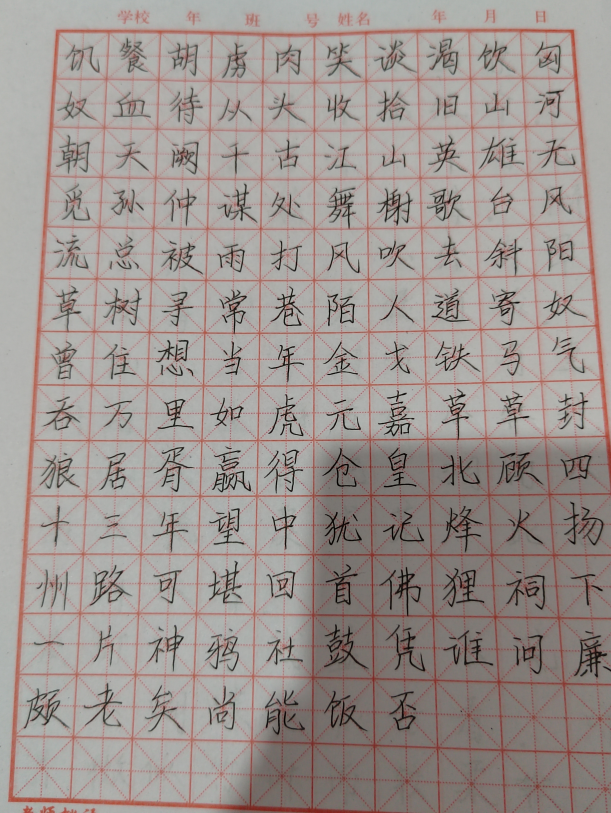 学校 年 班 号 姓名 年 月 日
饥餐胡虏肉笑谈渴饮匈
奴血待从头收拾旧山河
朝天阙千古江山英雄无
觅孙仲谋处舞榭歌台风
流总被雨打风吹去斜阳
草树寻常巷陌人道寄奴
曾住想当年金戈铁马气
吞万里如虎元嘉草草封
狼居胥赢得仓皇北顾四
十三年望中犹记烽火扬
州路可堪回首佛狸祠下
一片神鸦社鼓凭谁问廉
颇老矣尚能饭否